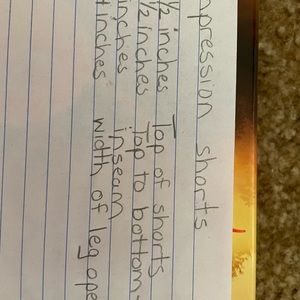 npression shorts
½ inches Top of shorts
½ inches Top to bottom-
inches inseam
inches width of leg ope